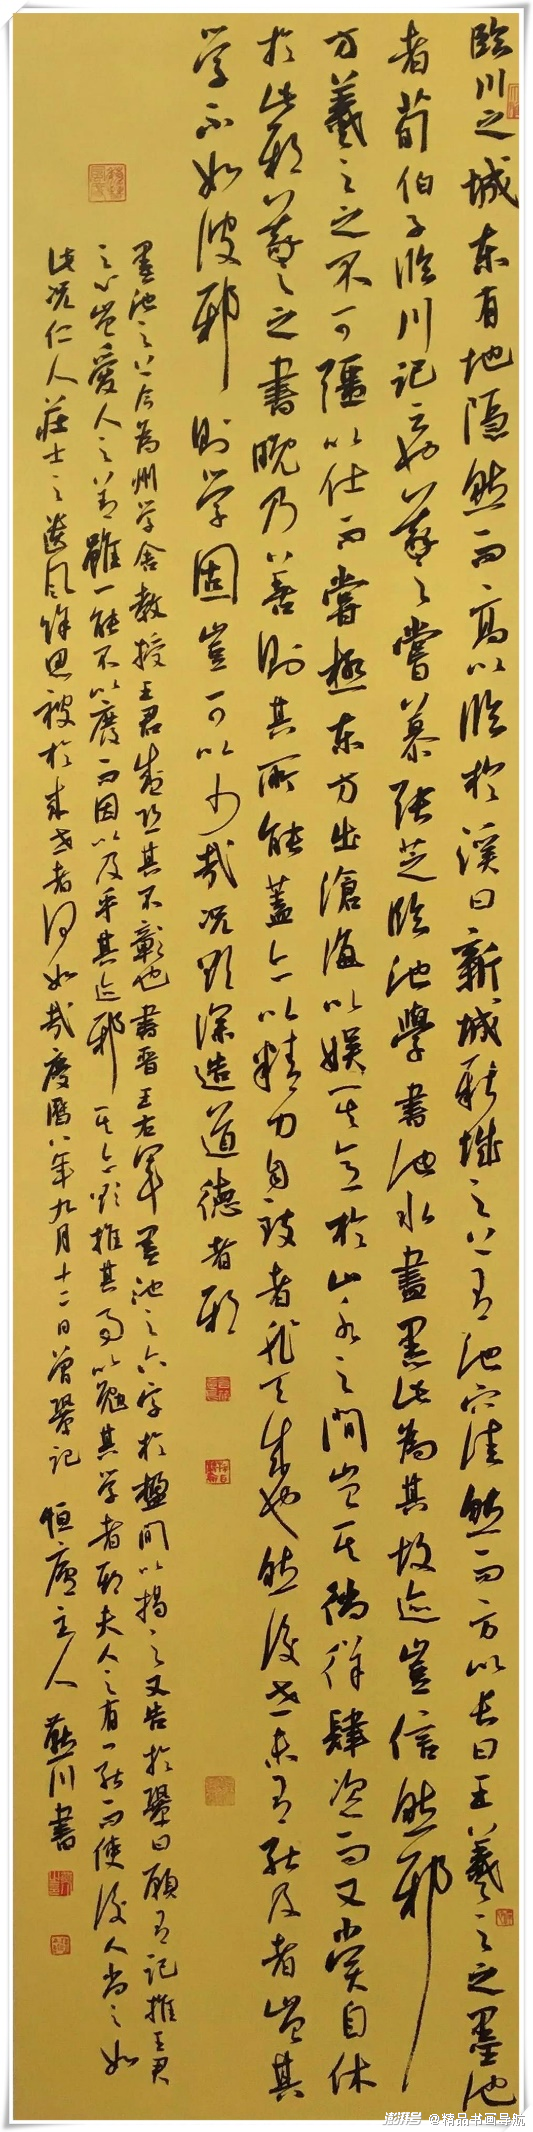 臨川之城東有地隱然而高以臨於溪曰新城新城之上有池窪然而方以長曰王羲之之墨池
者荀伯子臨川記云也羲之嘗慕張芝臨池學書池水盡墨此為其故迹豈信然邪
方羲之之不可彊以仕而嘗極東方出滄海以娛其意於山水之間豈其徜徉肆恣而又嘗自休
於此邪羲之之書晚乃善則其所能蓋亦以精力自致者非天成也然後世未有能及者豈其
学不如彼邪則学固豈可以少哉况欲深造道德者邪
墨池之上今為州学舍教授王君盛恐其不彰也書晋王右軍墨池之六字於楹間以揭之又告於鞏曰願有記推王君
之心豈愛人之善雖一能不以廢而因以及乎其迹邪其亦欲推其事以勉其学者邪夫人之有一能而使後人尚之如
此况仁人莊士之遺風餘思被於来世者何如哉慶曆八年九月十二日曾鞏記 恒廬主人 燕川書
澎湃号 @精品书画导航